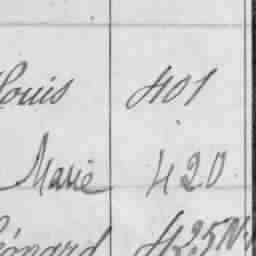 Louis 401
Marie 420
Léonard 425 N.